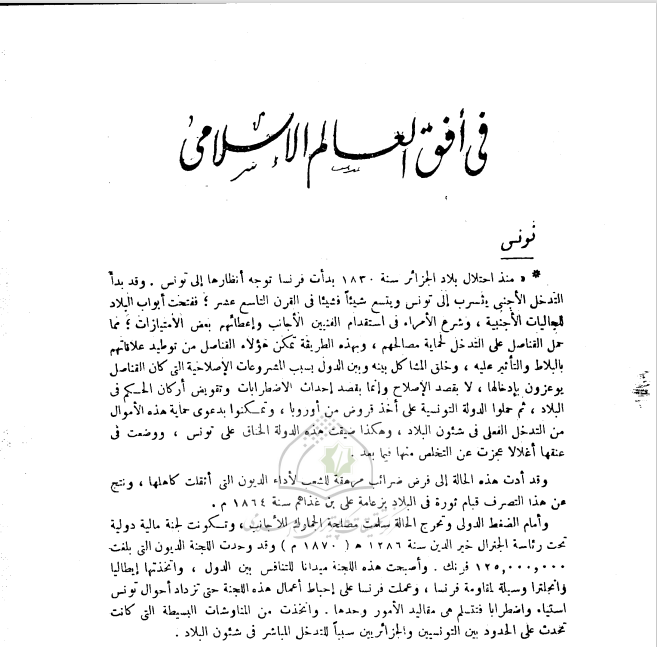 فى أفق العالم الإسلامى
تونس
* « منذ احتلال بلاد الجزائر سنة ١٨٣٠ بدأت فرنسا توجه أنظارها إلى تونس . وقد بدأ
التدخل الأجنبى يتسرب إلى تونس ويتسع شيئاً فشيئا فى القرن التاسع عشر ؛ ففتحت أبواب البلاد
للجاليات الأجنبية ، وشرع الأمراء فى استقدام الفنيين الأجانب وإعطائهم بعض الامتيازات ؛ مما
حمل القناصل على التدخل لحماية مصالحهم ، وبهذه الطريقة تمكن هؤلاء القناصل من توطيد علاقاتهم
بالبلاط والتأثير عليه ، وخلق المشاكل بينه وبين الدول بسبب المشروعات الإصلاحية التى كان القناصل
يوعزون بإدخالها ، لا بقصد الإصلاح وإنما بقصد إحداث الاضطرابات وتقويض أركان الحكم فى
البلاد ، ثم حملوا الدولة التونسية على أخذ قروض من أوروبا ، وتمكنوا بدعوى حماية هذه الأموال
من التدخل الفعلى فى شئون البلاد ، وهكذا ضيقت هذه الدولة الخناق على تونس ، ووضعت فى
عنقها أغلالا عجزت عن التخلص منها فيما بعد .
وقد أدت هذه الحالة إلى فرض ضرائب مرهقة للشعب لأداء الديون التى أثقلت كاهلها ، ونتج
عن هذا التصرف قيام ثورة فى البلاد بزعامة على بن غذاهم سنة ١٨٦٤ م .
وأمام الضغط الدولى وتحرج الحالة سلمت مصلحة الجمارك للأجانب ، وتكونت لجنة مالية دولية
تحت رئاسة الجنرال خير الدين سنة ١٢٨٦ ه ( ١٨٧٠ م ) وقد وحدت اللجنة الديون التى بلغت
١٢٥,٠٠٠,٠٠٠ فرنك . وأصبحت هذه اللجنة ميدانا للتنافس بين الدول ، واتخذتها إيطاليا
وانجلترا وسيلة لمقاومة فرنسا ، وعملت فرنسا على إحباط أعمال هذه اللجنة حتى تزداد أحوال تونس
استياء واضطرابا فتتسلم هى مقاليد الأمور وحدها . واتخذت من المناوشات البسيطة التى كانت
تحدث على الحدود بين التونسيين والجزائريين سبباً للتدخل المباشر فى شئون البلاد .